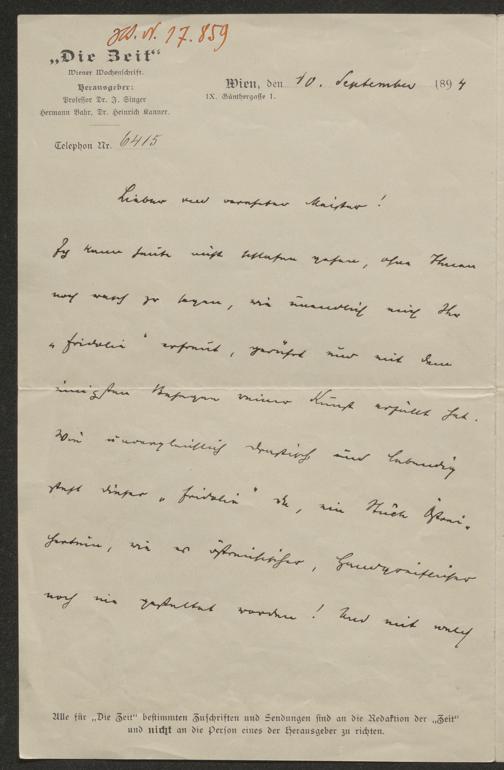 J. N. 17.859
„Die Zeit“
Wiener Wochenschrift.
Herausgeber:
Professor Dr. J. Singer
Hermann Bahr, Dr. Heinrich Kanner.
Telephon Nr. 6415
Wien, den 10. September 1894
IX. Günthergasse 1.
Lieber und verehrter Meister!
Ich kann heute nicht schlafen gehen, ohne Ihnen
noch rasch zu sagen, wie unendlich mich Ihr
„Fridolin“ erfreut, gerührt und mit dem
innigsten Behagen reiner Kunst erfüllt hat.
Wie unvergleichlich drastisch und lebendig
steht dieser „Fridolin“ da, ein Stück Östrei-
chertum, wie es östreichischer,
noch nie gestaltet worden! Und mit welch
Alle für „Die Zeit“ bestimmten Zuschriften und Sendungen sind an die Redaktion der „Zeit“
und nicht an die Person eines der Herausgeber zu richten.